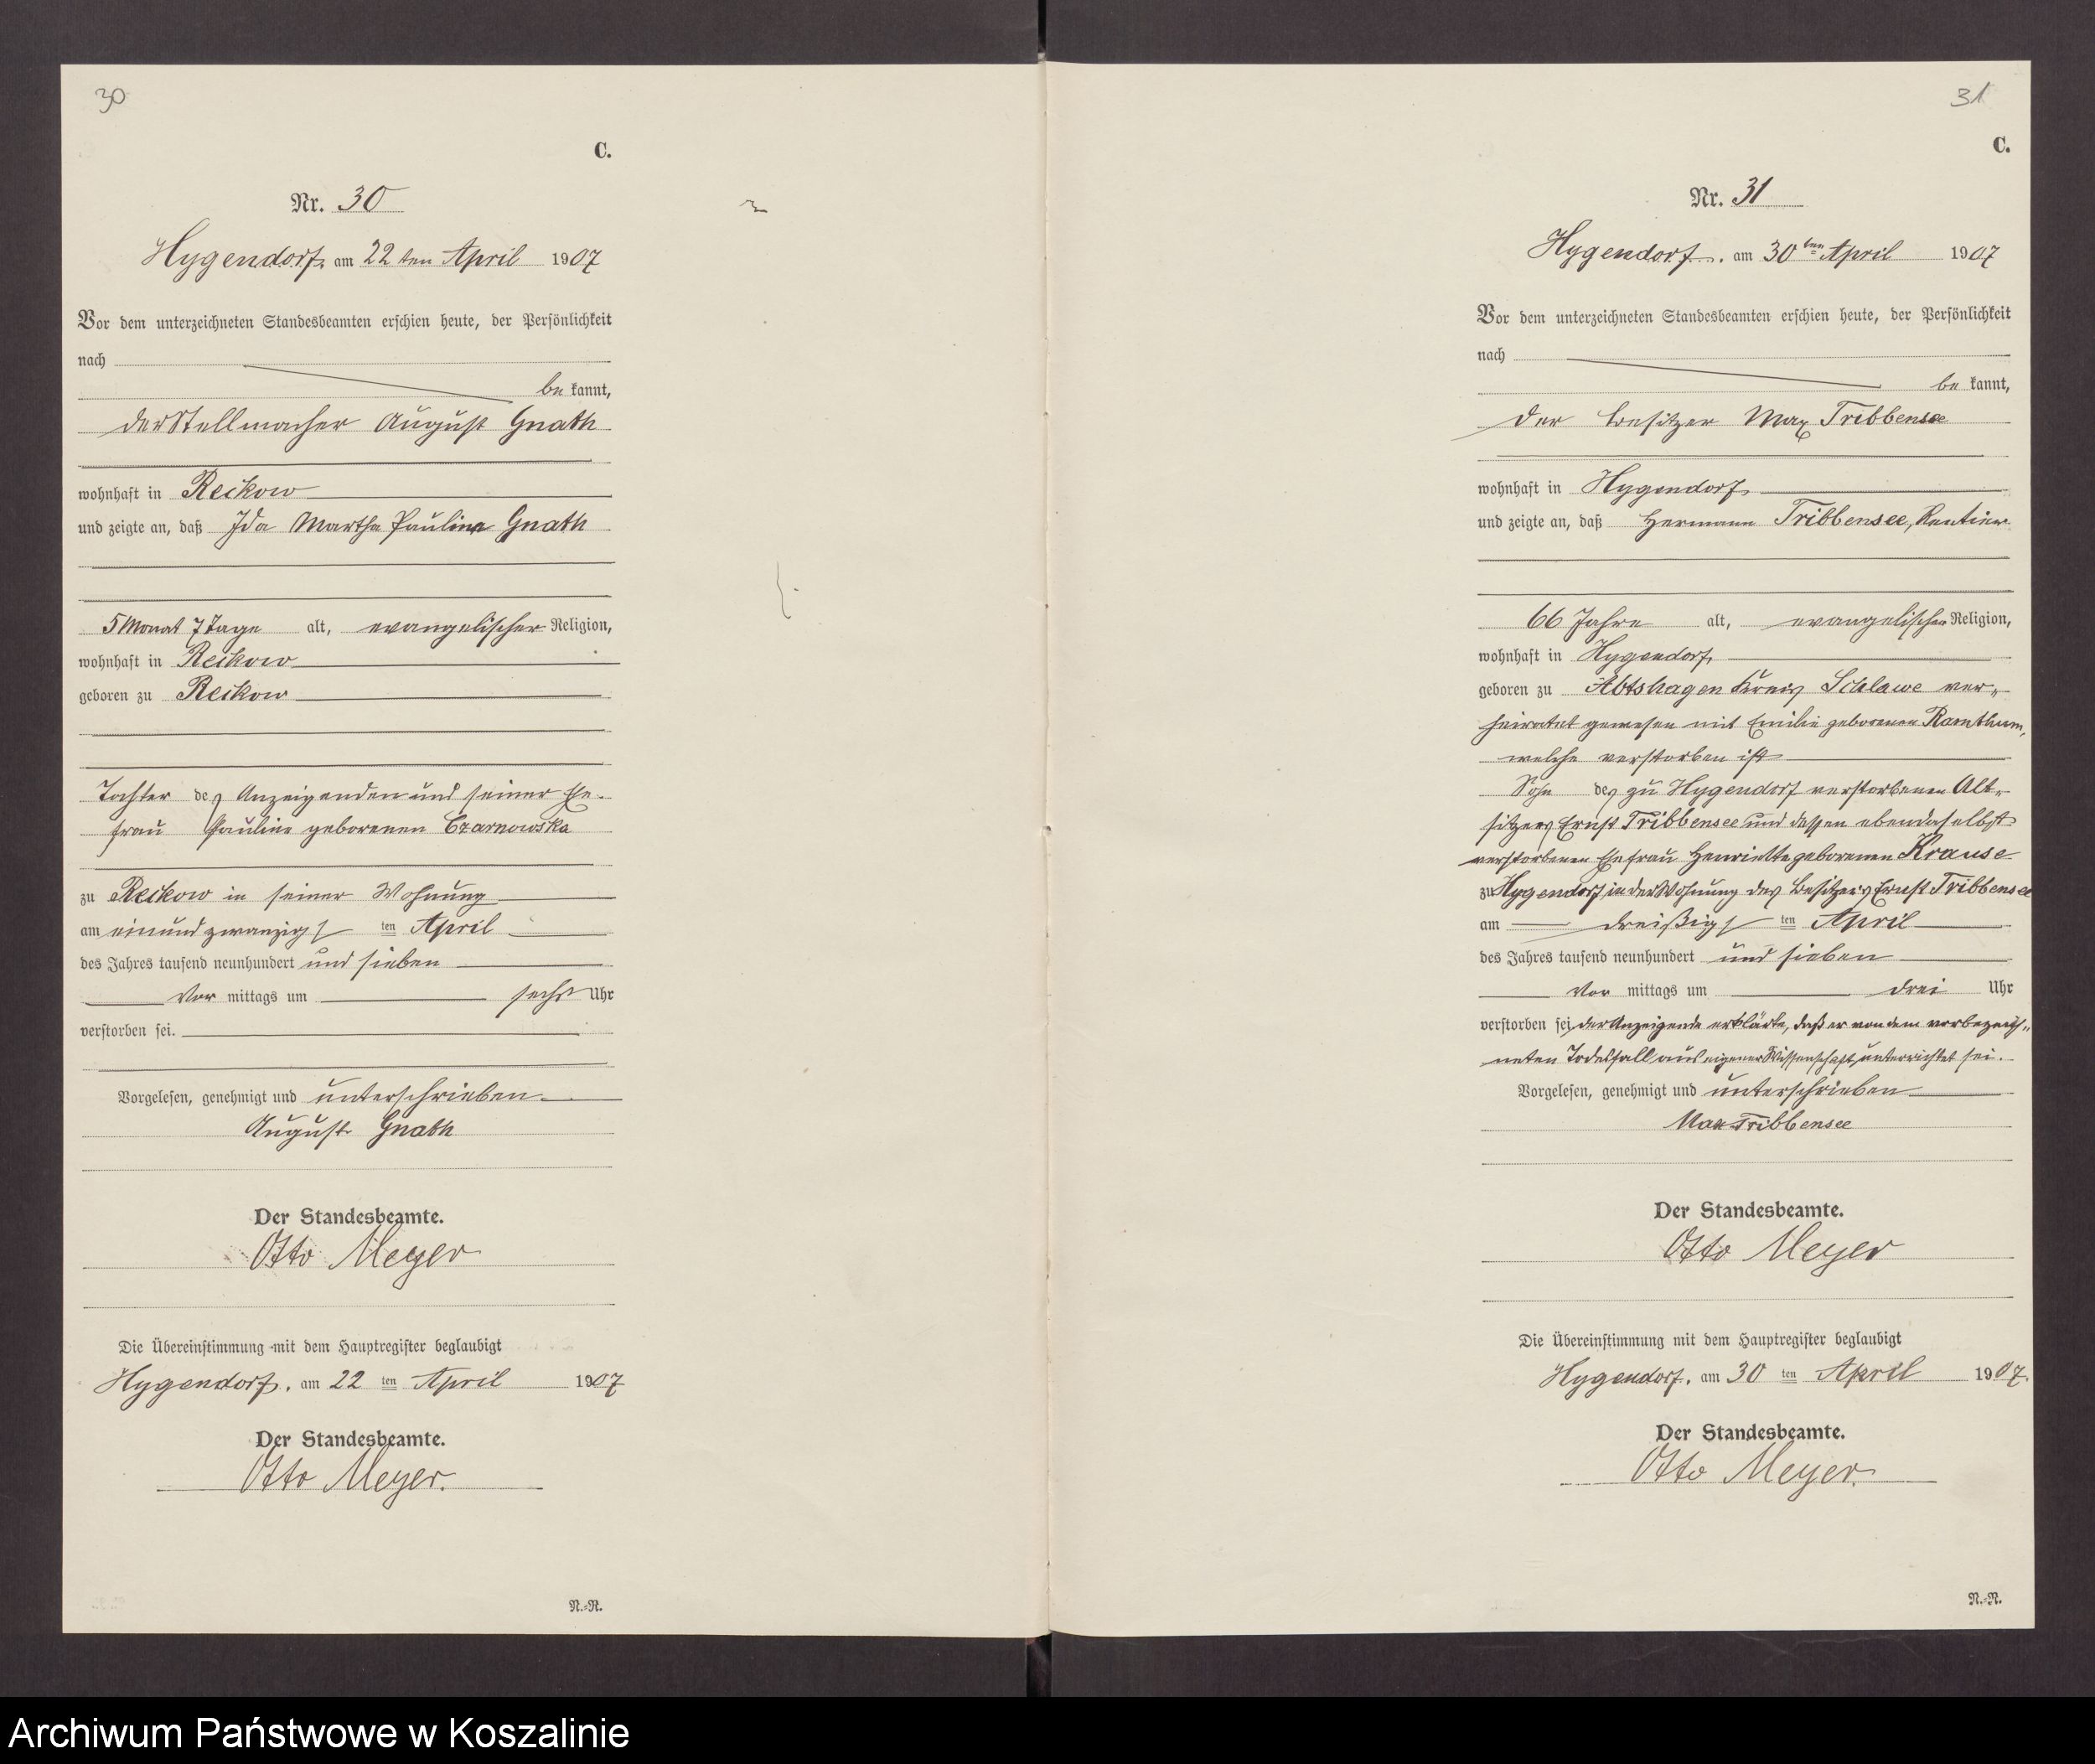 30
C.
Nr. 30
Hygendorf, am 22 ten April 1907
Vor dem unterzeichneten Standesbeamten erschien heute, der Persönlichkeit
nach
be kannt,
der Stellmacher August Gnath
wohnhaft in Reikow
und zeigte an, daß Ida Martha Pauline Gnath
5 Monat 7 Tage alt, evangelischer Religion,
wohnhaft in Reikow
geboren zu Reikow
Tochter des Anzeigenden und seiner Ehe-
frau Pauline geborenen Czarnowska
zu Reikow in seiner Wohnung
am einundzwanzigsten April
des Jahres tausend neunhundert und sieben
Vor mittags um sechs Uhr
verstorben sei.
Vorgelesen, genehmigt und unterschrieben
August Gnath
Der Standesbeamte.
Otto Meyer
Die Übereinstimmung mit dem Hauptregister beglaubigt
Hygendorf, am 22 ten April 1907
Der Standesbeamte.
Otto Meyer.
N.-R.
31
C.
Nr. 31
Hygendorf, am 30 ten April 1907
Vor dem unterzeichneten Standesbeamten erschien heute, der Persönlichkeit
nach
be kannt,
der Besitzer Max Tribbensee
wohnhaft in Hygendorf
und zeigte an, daß Hermann Tribbensee, Rentier
66 Jahre alt, evangelischer Religion,
wohnhaft in Hygendorf,
geboren zu Abtshagen Kreis Schlawe ver-
heiratet gewesen mit Emilie geborenen Ramthum,
welche verstorben ist
Sohn des zu Hygendorf verstorbenen Alt-
sitzers Ernst Tribbensee und dessen ebendaselbst
verstorbenen Ehefrau Henriette geborenen Krause
zu Hygendorf, in der Wohnung des Besitzers Ernst Tribbensee
am dreißigsten April
des Jahres tausend neunhundert und sieben
Vor mittags um drei Uhr
verstorben sei, der Anzeigende erklärte, daß er von dem vorbezeich-
neten Todesfall aus eigener Wissenschaft unterrichtet sei.
Vorgelesen, genehmigt und unterschrieben
Max Tribbensee
Der Standesbeamte.
Otto Meyer
Die Übereinstimmung mit dem Hauptregister beglaubigt
Hygendorf, am 30 ten April 1907.
Der Standesbeamte.
Otto Meyer.
N.-R.
Archiwum Państwowe w Koszalinie